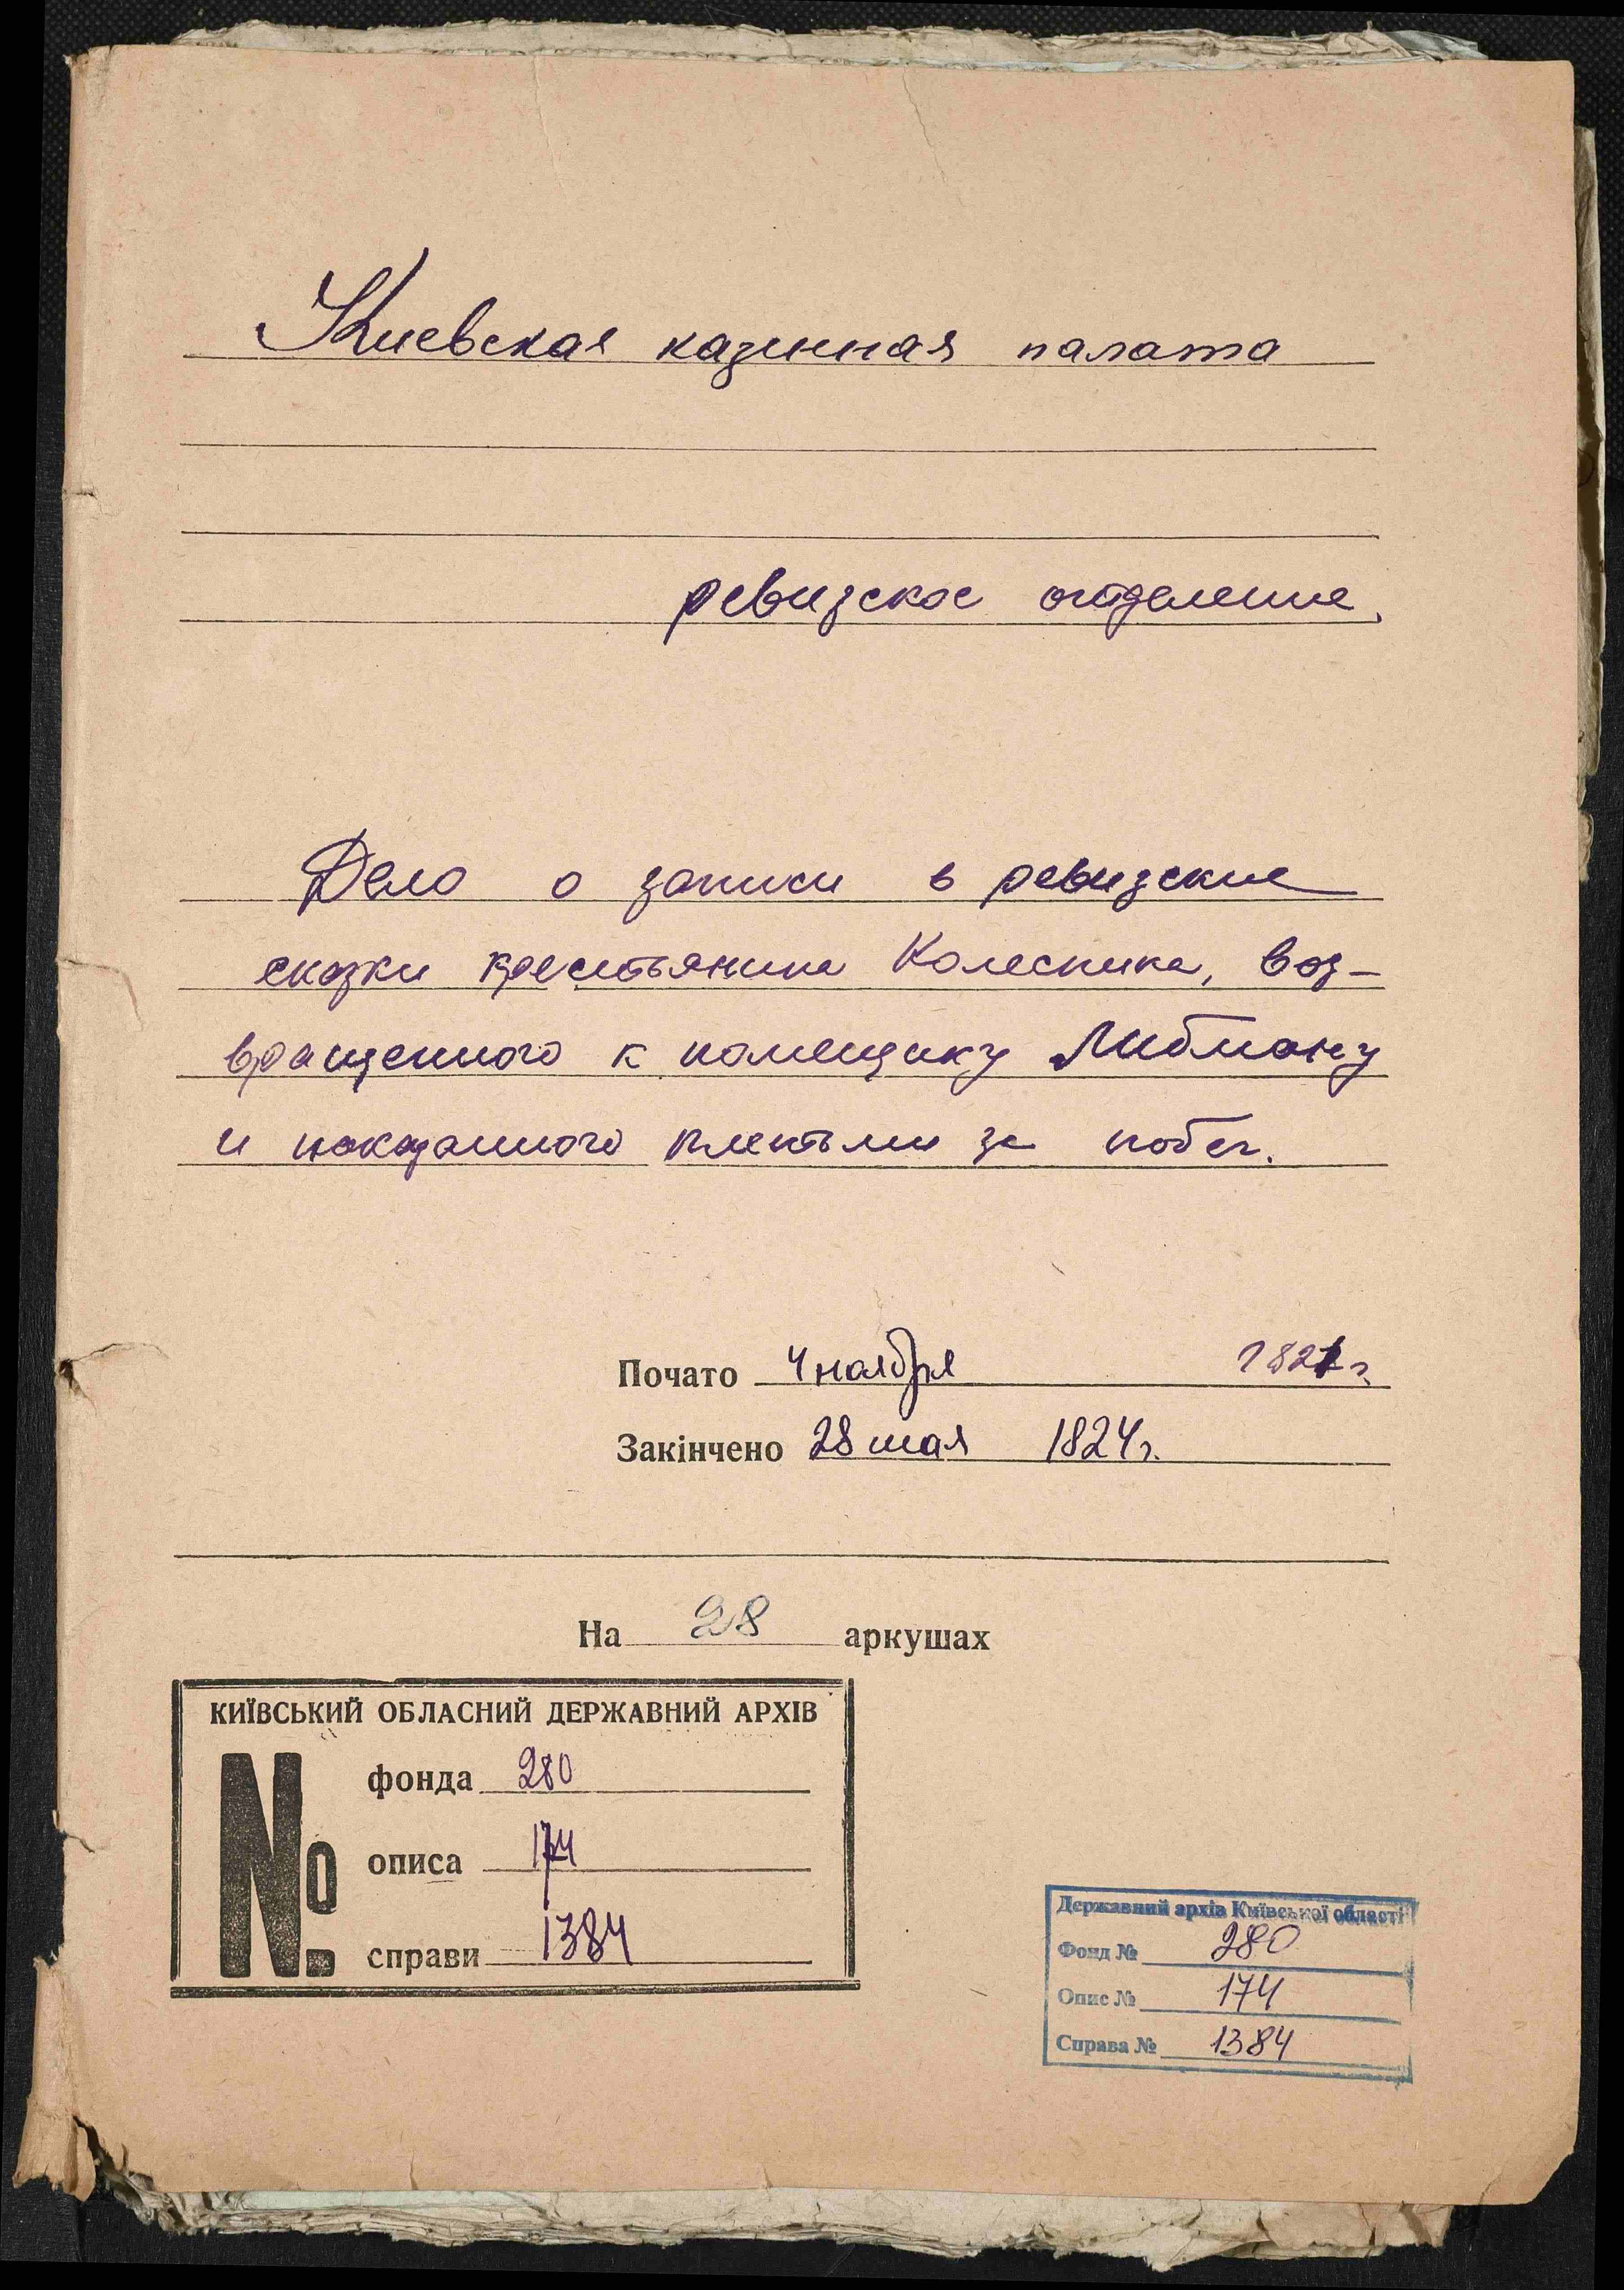 Киевская казенная палата
ревизское отделение.
Дело о записи в ревизские
сказки крестьянина Колесника, воз-
вращенного к помещику Либману
и наказанного плетьми за побег.
Почато 4 ноября 1821 г.
Закінчено 28 мая 1824 г.
На 28 аркушах
КИЇВСЬКИЙ ОБЛАСНИЙ ДЕРЖАВНИЙ АРХІВ
№
фонда 280
описа 174
справи 1384
Державний архів Київської області
Фонд № 280
Опис № 174
Справа № 1384